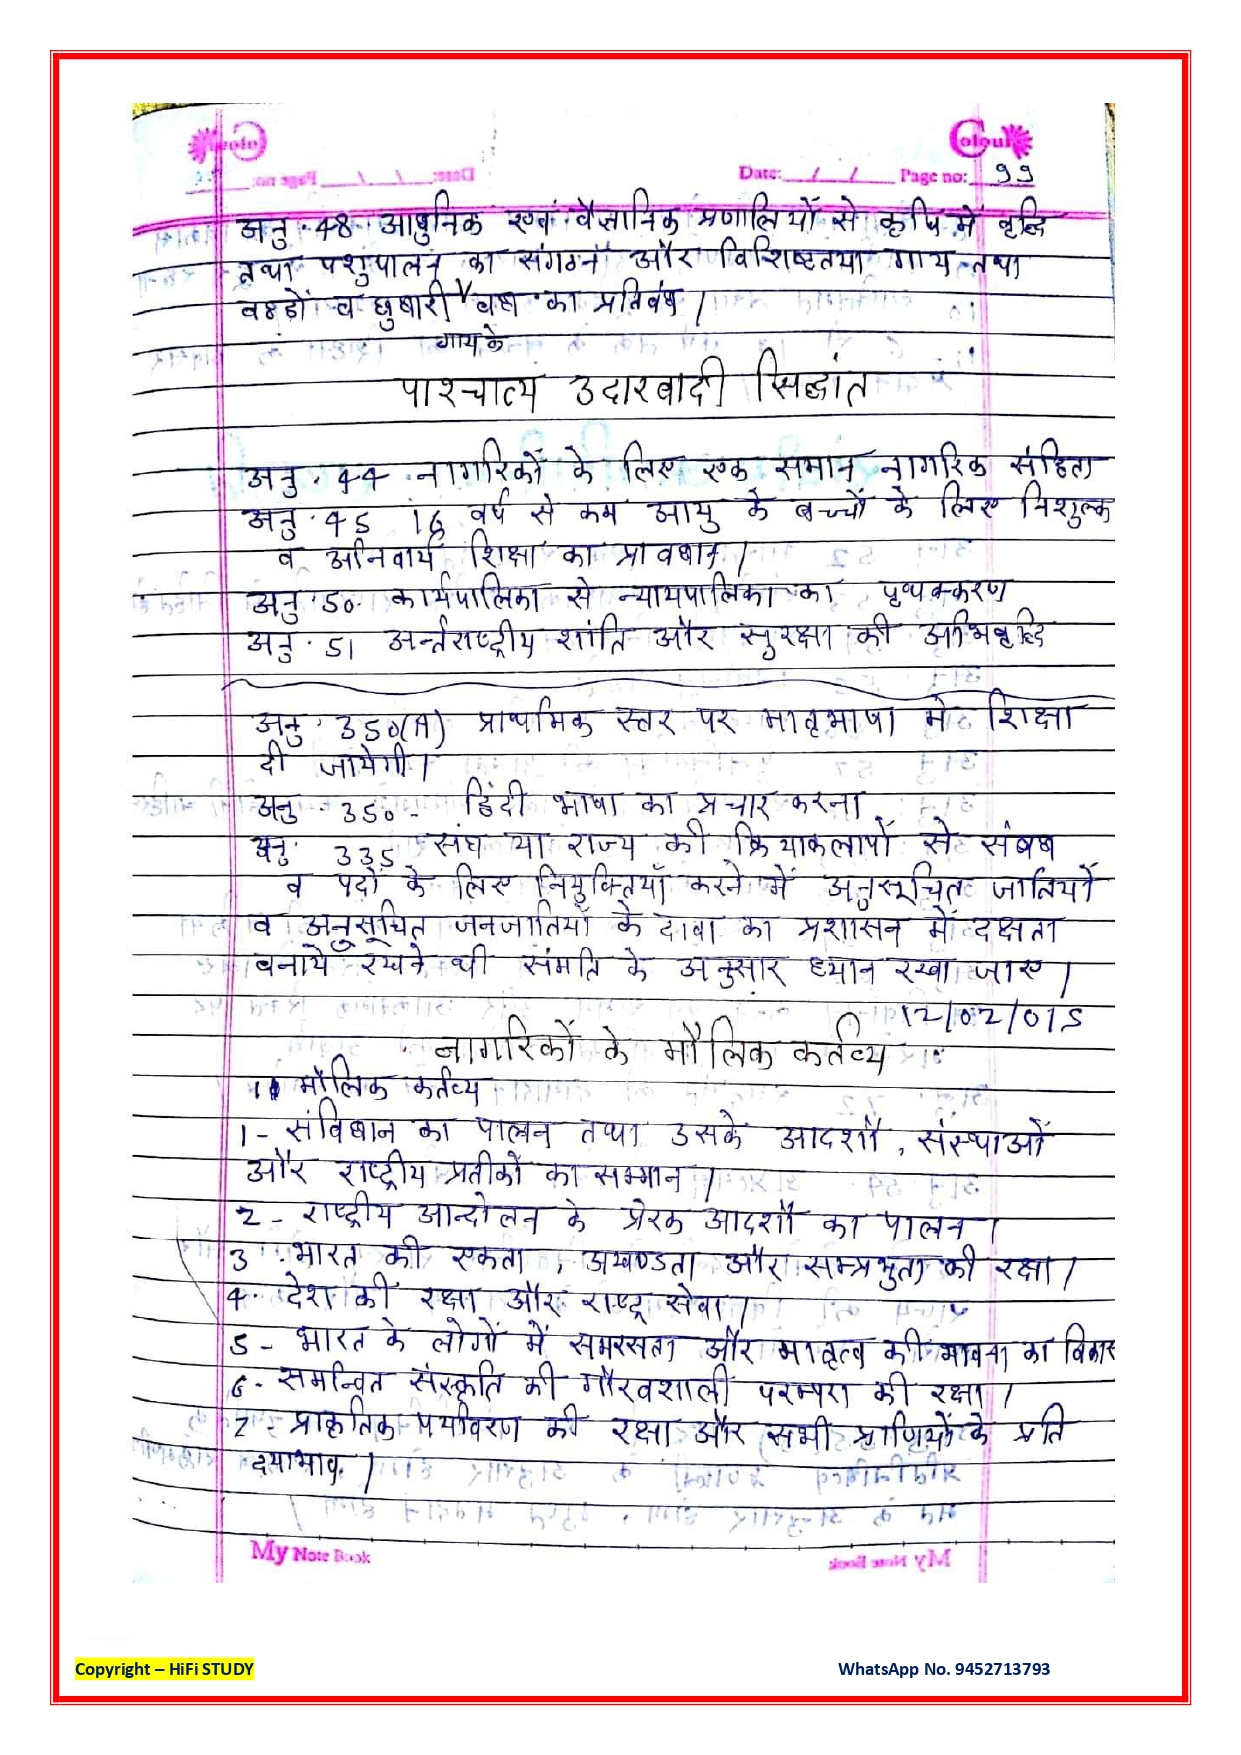 Colour
Date: __/__/__ Page no: 99
अनु. 48 आधुनिक एवं वैज्ञानिक प्रणालियों से कृषि में वृद्धि
तथा पशुपालन का संगठन और विशिष्टतया गाय तथा
बछड़ों व दुधारी वध का प्रतिबंध।
गाय के
पाश्चात्य उदारवादी सिद्धांत
अनु. 44 नागरिकों के लिए एक समान नागरिक संहिता
अनु. 45 16 वर्ष से कम आयु के बच्चों के लिए निशुल्क
व अनिवार्य शिक्षा का प्रावधान।
अनु. 50. कार्यपालिका से न्यायपालिका का पृथक्करण
अनु. 51 अर्न्तराष्ट्रीय शांति और सुरक्षा की अभिवृद्धि
अनु. 350(A) प्राथमिक स्तर पर मातृभाषा में शिक्षा
दी जायेगी।
अनु 350 - हिंदी भाषा का प्रचार करना
अनु. 335 संघ या राज्य की क्रियाकलापों से संबध
व पदों के लिए नियुक्तियाँ करने में अनुसूचित जातियों
व अनुसूचित जनजातियों के दावा का प्रशासन में दक्षता
बनाये रखने की संमति के अनुसार ध्यान रखा जाए।
12/02/015
नागरिकों के मौलिक कर्तव्य
11 मौलिक कर्तव्य
1 - संविधान का पालन तथा उसके आदर्शों, संस्थाओं
और राष्ट्रीय प्रतीकों का सम्मान।
2 - राष्ट्रीय आन्दोलन के प्रेरक आदर्शों का पालन।
3. भारत की एकता, अखण्डता और सम्प्रभुता की रक्षा।
4. देश की रक्षा और राष्ट्र सेवा।
5 - भारत के लोगों में समरसता और भातृत्व की भावना का विकास
6 - समन्वित संस्कृति की गौरवशाली परम्परा की रक्षा।
7 - प्राकृतिक पर्यावरण की रक्षा और सभी प्राणियों के प्रति
दयाभाव।
My Note Book
Copyright – HiFi STUDY WhatsApp No. 9452713793